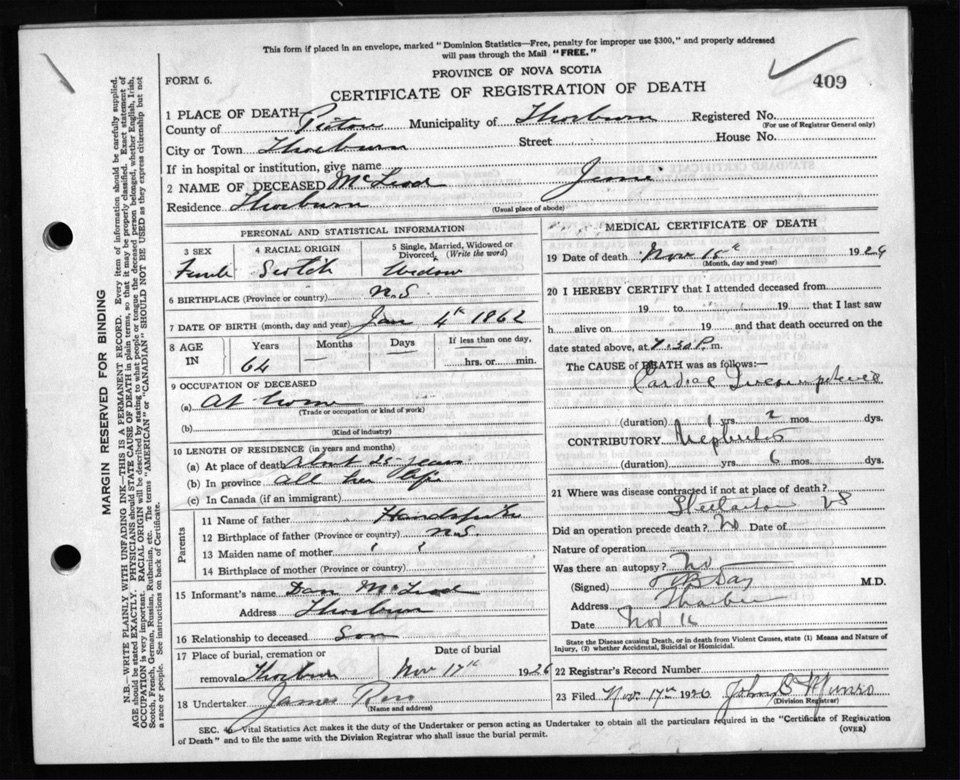 This form if placed in an envelope, marked "Dominion Statistics—Free, penalty for improper use $300," and properly addressed
will pass through the Mail "FREE."
FORM 6.
PROVINCE OF NOVA SCOTIA
CERTIFICATE OF REGISTRATION OF DEATH
409
1 PLACE OF DEATH
County of Pictou Municipality of Thorburn Registered No.
(For use of Registrar General only)
City or Town Thorburn Street House No.
If in hospital or institution, give name
2 NAME OF DECEASED McLeod
Residence Thorburn (Usual place of abode)
PERSONAL AND STATISTICAL INFORMATION
3 SEX 4 RACIAL ORIGIN 5 Single, Married, Widowed or Divorced, (Write the word)
Female Scotch Widow
6 BIRTHPLACE (Province or country) N.S
7 DATE OF BIRTH (month, day and year) Jan 4th 1862
8 AGE IN Years Months Days If less than one day,
64 — — hrs. or min.
9 OCCUPATION OF DECEASED
(a) At home
(Trade or occupation or kind of work)
(b)
(Kind of industry)
10 LENGTH OF RESIDENCE (in years and months)
(a) At place of death about years
(b) In province all her life
(c) In Canada (if an immigrant)
Parents
11 Name of father
12 Birthplace of father (Province or country) N.S.
13 Maiden name of mother ? ?
14 Birthplace of mother (Province or Country)
15 Informant's name Dan McLeod
Address Thorburn
16 Relationship to deceased Son
17 Place of burial, cremation or removal Date of burial
Thorburn Nov 17th 1926
18 Undertaker James Ross
(Name and address)
MEDICAL CERTIFICATE OF DEATH
19 Date of death Nov 15th 1926
(Month, day and year)
20 I HEREBY CERTIFY that I attended deceased from
19 to 19 that I last saw
h alive on 19 and that death occurred on
date stated above, at 7.30 P. m.
The CAUSE of DEATH was as follows:—
Cardiac
(duration) 1 yrs 2 mos. dys.
CONTRIBUTORY Nephritis
(duration) yrs. 6 mos. dys.
21 Where was disease contracted if not at place of death?
Stellarton NS
Did an operation precede death? No Date of
Nature of operation
Was there an autopsy? No
(Signed) Day M.D.
Address Thorburn
Date Nov 16
State the Disease causing Death, or in death from Violent Causes, state (1) Means and Nature of
Injury, (2) whether Accidental, Suicidal or Homicidal.
22 Registrar's Record Number
23 Filed Nov. 17th 1926 John B Munro
(Division Registrar)
SEC. Vital Statistics Act makes it the duty of the Undertaker or person acting as Undertaker to obtain all the particulars required in the "Certificate of Registration
of Death" and to file the same with the Division Registrar who shall issue the burial permit.
(OVER)
MARGIN RESERVED FOR BINDING
N.B.—WRITE PLAINLY WITH UNFADING INK—THIS IS A PERMANENT RECORD. Every item of information should be carefully supplied.
AGE should be stated EXACTLY. PHYSICIANS should STATE CAUSE OF DEATH in plain terms, so that it may be properly classified. Exact statement of
OCCUPATION is very important. RACIAL ORIGIN will be described by stating to what people or tongue the deceased person belonged, whether English, Irish,
Scotch, French, German, Russian, Ruthenian, etc. The terms "AMERICAN" or "CANADIAN" SHOULD NOT BE USED as they express citizenship but not
a race or people. See instructions on back of Certificate.